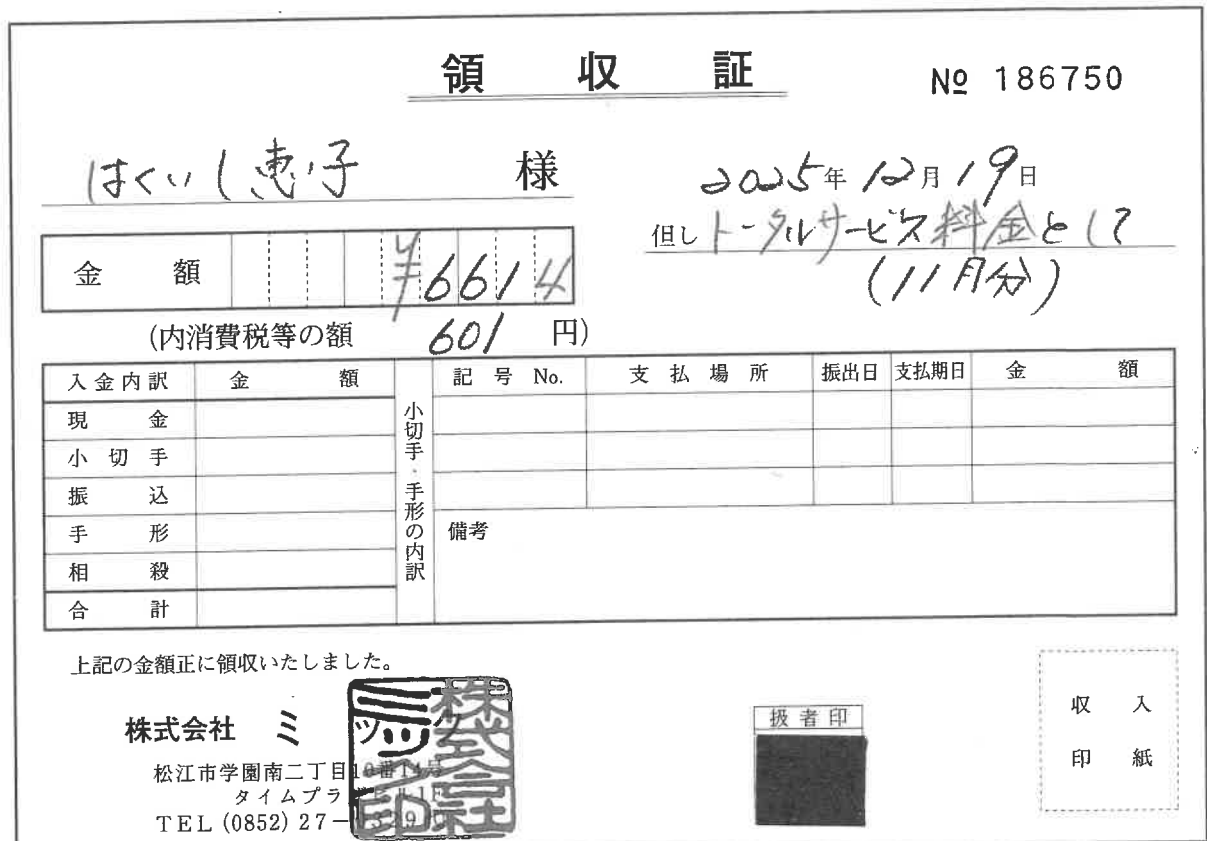 領収証
№ 186750
はくいし恵子 様
2025年12月19日
但し トータルサービス料金として
(11月分)
金額 ¥6614
(内消費税等の額 601 円)
入金内訳 金額
現金
小切手
振込
手形
相殺
合計
小切手・手形の内訳
記号No. 支払場所 振出日 支払期日 金額
備考
上記の金額正に領収いたしました。
株式会社 ミック
松江市学園南二丁目10番14号
タイムプラ
TEL (0852) 27-
株式会社ミック印
扱者印
収入
印紙